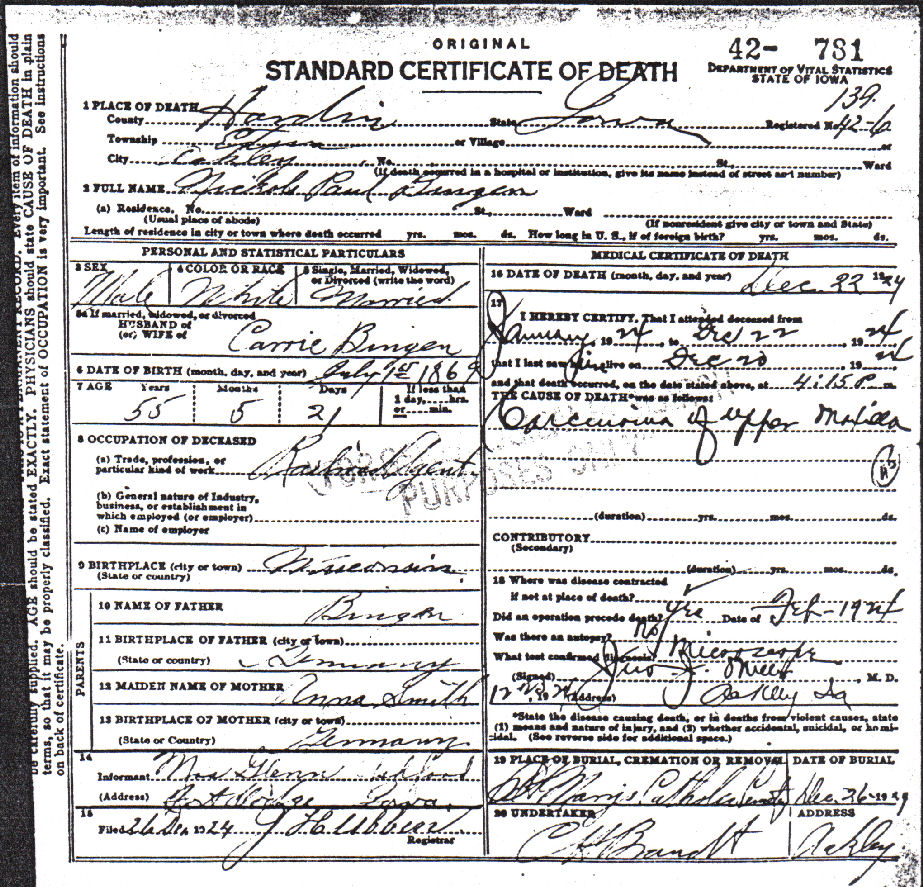 ORIGINAL
42- 781
STANDARD CERTIFICATE OF DEATH
DEPARTMENT OF VITAL STATISTICS
STATE OF IOWA
139
1 PLACE OF DEATH
County Hardin State Iowa Registered No. 42-6
Township or Village or
City Ackley No. St. Ward
(If death occurred in a hospital or institution, give its name instead of street and number)
2 FULL NAME Nickols Paul Bingen
(a) Residence, No. St. Ward
(Usual place of abode) (If nonresident give city or town and State)
Length of residence in city or town where death occurred yrs. mos. ds. How long in U. S., if of foreign birth? yrs. mos. ds.
PERSONAL AND STATISTICAL PARTICULARS
3 SEX 4 COLOR OR RACE 5 Single, Married, Widowed, or Divorced (write the word)
Male White Married
5a If married, widowed, or divorced
HUSBAND of
(or) WIFE of Carrie Bingen
6 DATE OF BIRTH (month, day, and year) July 1st 1869
7 AGE Years Months Days If less than
1 day, hrs.
or min.
55 5 21
8 OCCUPATION OF DECEASED
(a) Trade, profession, or
particular kind of work Railroad Agent
(b) General nature of Industry,
business, or establishment in
which employed (or employer)
(c) Name of employer
9 BIRTHPLACE (city or town) Wisconsin
(State or country)
PARENTS
10 NAME OF FATHER Bingen
11 BIRTHPLACE OF FATHER (city or town)
(State or country) Germany
12 MAIDEN NAME OF MOTHER Anna Smith
13 BIRTHPLACE OF MOTHER (city or town)
(State or Country) Germany
14
Informant Mrs Glenn
(Address) Fort Dodge Iowa
15
Filed 26 Dec 1924 J H Ubben
Registrar
MEDICAL CERTIFICATE OF DEATH
16 DATE OF DEATH (month, day, and year) Dec. 22 1924
17
I HEREBY CERTIFY, That I attended deceased from
January, 1924, to Dec 22, 1924
that I last saw him alive on Dec 20, 1924
and that death occurred, on the date stated above, at 4:15 P. m.
THE CAUSE OF DEATH* was as follows:
Carcinoma of upper Maxilla
(duration) yrs. mos. ds.
CONTRIBUTORY
(Secondary)
(duration) yrs. mos. ds.
18 Where was disease contracted
if not at place of death?
Did an operation precede death? Yes Date of Feb-1924
Was there an autopsy? No
What test confirmed diagnosis? Microscope
(Signed) Jno J. Mills, M. D.
, 19 24 (Address) Ackley Ia
*State the disease causing death, or in deaths from violent causes, state
(1) means and nature of injury, and (2) whether accidental, suicidal, or homi-
cidal. (See reverse side for additional space.)
19 PLACE OF BURIAL, CREMATION OR REMOVAL DATE OF BURIAL
St Marys Catholic Cemetery Dec. 26-1924
20 UNDERTAKER ADDRESS
Brandt Ackley
PURPOSES ONLY
PERMANENT RECORD. Every item of information should
be carefully supplied. AGE should be stated EXACTLY. PHYSICIANS should state CAUSE OF DEATH in plain
terms, so that it may be properly classified. Exact statement of OCCUPATION is very important. See instructions
on back of certificate.